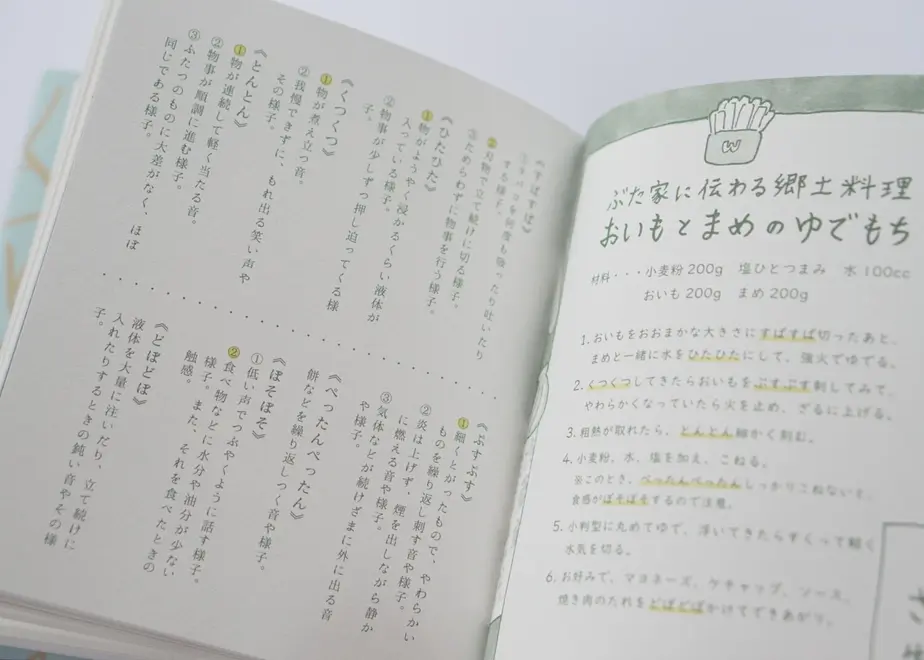 W
ぶた家に伝わる郷土料理
おいもとまめのゆでもち
材料・・・小麦粉200g 塩ひとつまみ 水100cc
おいも200g まめ200g
1. おいもをおおまかな大きさにすぱすぱ切ったあと、
まめと一緒に水をひたひたにして、強火でゆでる。
2. くつくつしてきたらおいもをぶすぶす刺してみて、
やわらかくなっていたら火を止め、ざるに上げる。
3. 粗熱が取れたら、とんとん細かく刻む。
4. 小麦粉、水、塩を加え、こねる。
※このとき、ぺったんぺったんしっかりこねないと、
食感がぼそぼそするので注意。
5. 小判型に丸めてゆで、浮いてきたらすくって軽く
水気を切る。
6. お好みで、マヨネーズ、ケチャップ、ソース、
焼き肉のたれをどぼどぼかけてできあがり。
《すぱすぱ》
①タバコを何度も吸ったり吐いたり
する様子。
②刃物で立て続けに切る様子。
③ためらわずに物事を行う様子。
《ひたひた》
①物がようやく浸かるくらい液体が
入っている様子。
②物事が少しずつ押し迫ってくる様
子。
《くつくつ》
①物が煮え立つ音。
②我慢できずに、もれ出る笑い声や
その様子。
《とんとん》
①物が連続して軽く当たる音。
②物事が順調に進む様子。
③ふたつのものに大差がなく、ほぼ
同じである様子。
《ぶすぶす》
①細くとがったもので、やわらかい
ものを繰り返し刺す音や様子。
②炎は上げず、煙を出しながら静か
に燃える音や様子。
③気体などが続けざまに外に出る音
や様子。
《ぺったんぺったん》
餅などを繰り返しつく音や様子。
《ぼそぼそ》
①低い声でつぶやくように話す様子。
②食べ物などに水分や油分が少ない
様子。また、それを食べたときの
触感。
《どぼどぼ》
液体を大量に注いだり、立て続けに
入れたりするときの鈍い音やその様
子。